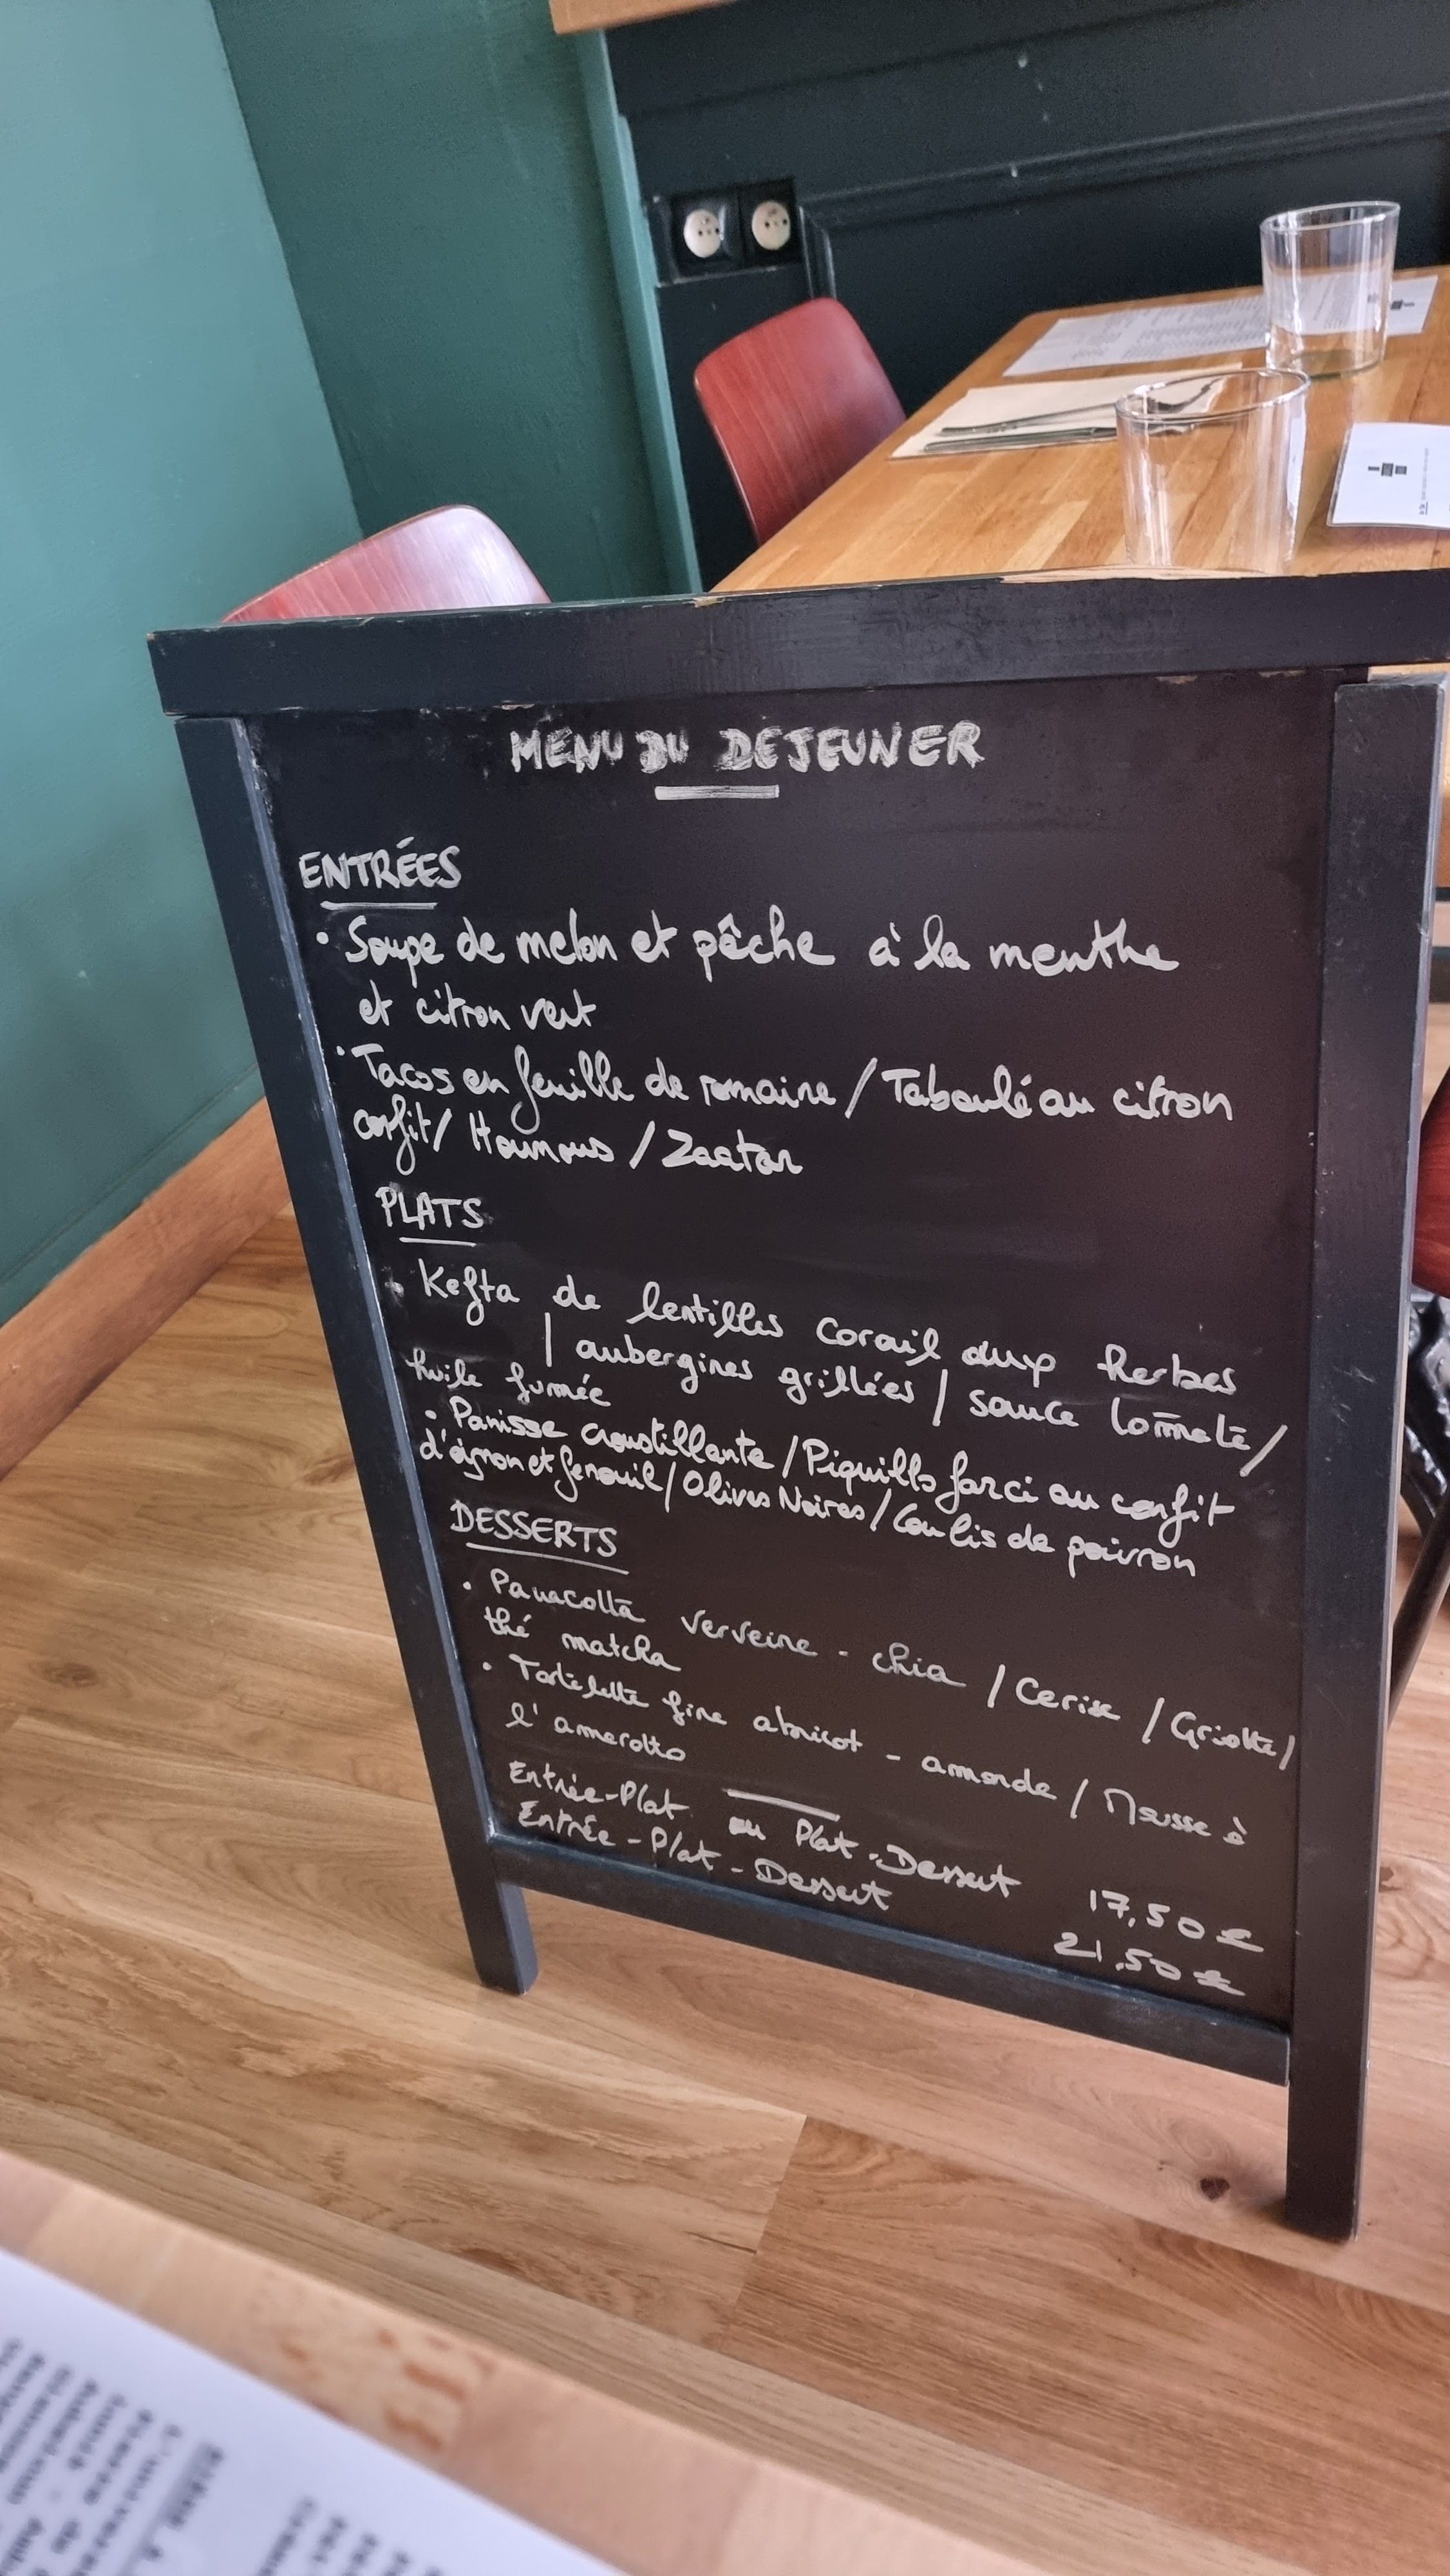 MENU DU DEJEUNER
ENTRÉES
• Soupe de melon et pêche à la menthe
et citron vert
• Tacos en feuille de romaine / Taboulé au citron
confit / Houmous / Zaatar
PLATS
• Kefta de lentilles corail aux herbes
| aubergines grillées / sauce tomate /
huile fumée
• Panisse croustillante / Piquillo farci au confit
d'oignon et fenouil / Olives Noires / Coulis de poivron
DESSERTS
• Panacotta verveine - chia / Cerise / Griotte /
thé matcha
• Tartelette fine abricot - amande / Mousse à
l'amaretto
Entrée-Plat ou Plat-Dessert 17,50 €
Entrée-Plat-Dessert 21,50 €